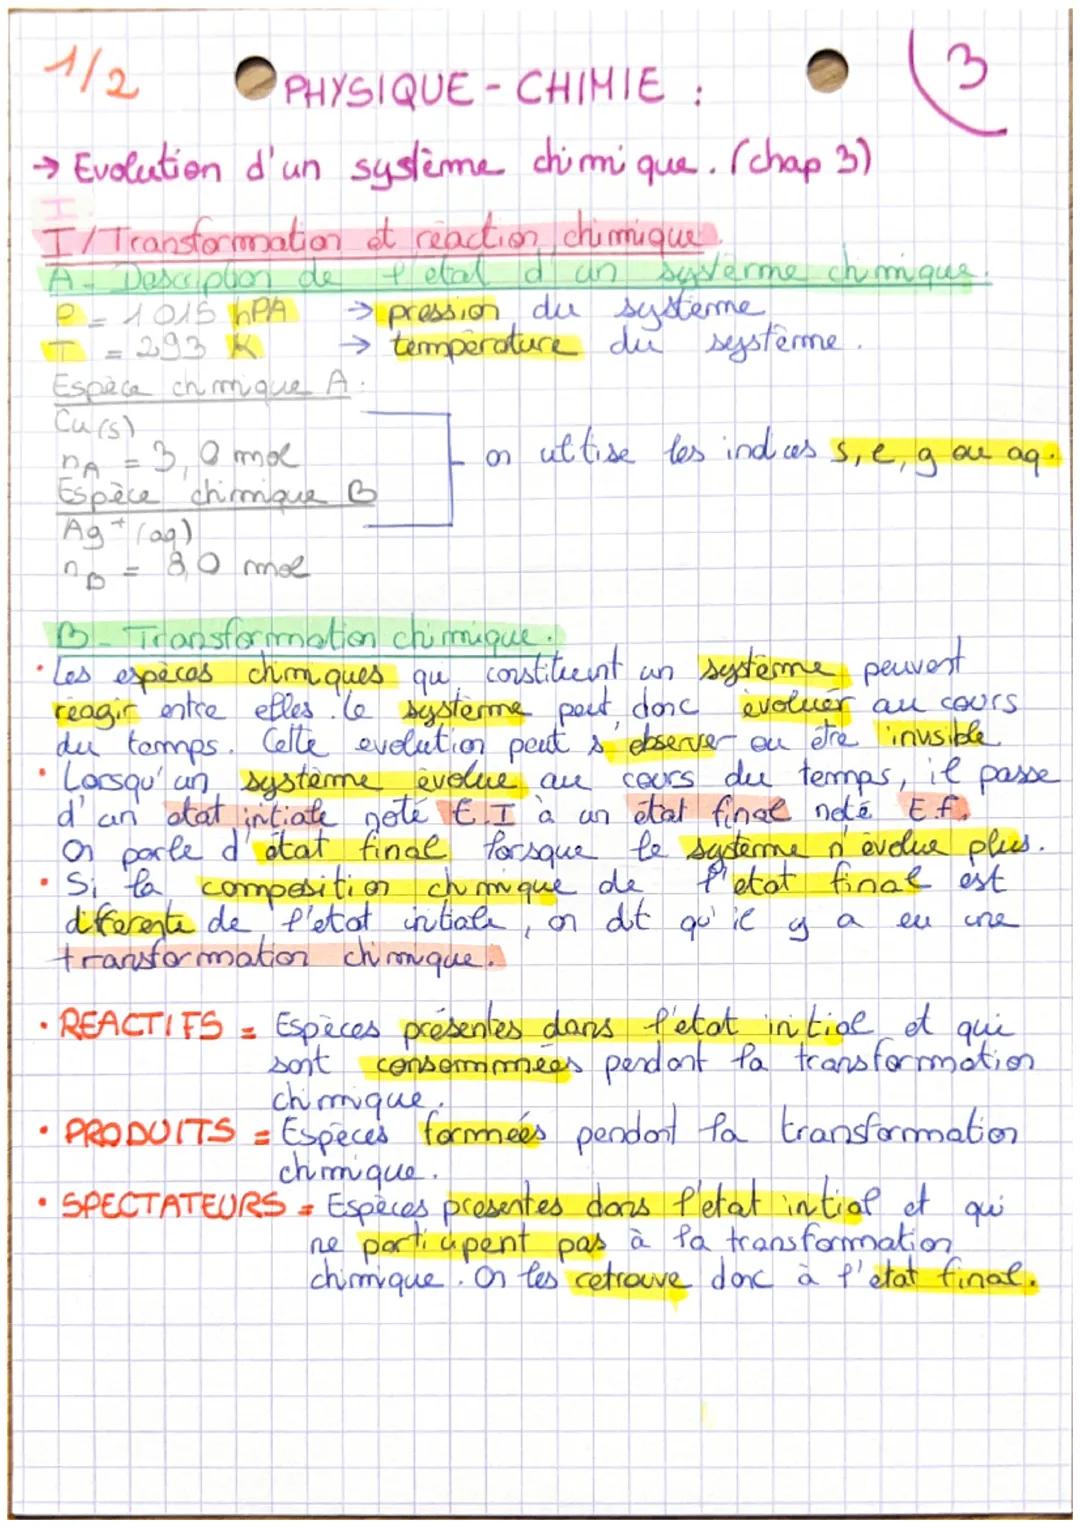 1/2
PHYSIQUE - CHIMIE :
3
→ Evolution d'un système chimique. (chap 3)
I
I/ Transformation et réaction chimique.
A - Description de l'état d'un système chimique.
P = 1015 hPA → pression du système
T = 293 K → température du système.
Espèce chimique A.
Cu (s)
nA = 3,0 mol
on utilise les indices s, l, g ou aq.
Espèce chimique B
Ag+ (aq)
nB = 8,0 mol
B - Transformation chimique.
• Les espèces chimiques qui constituent un système peuvent
réagir entre elles. Le système peut donc évoluer au cours
du temps. Cette évolution peut s'observer ou être invisible
• Lorsqu'un système évolue au cours du temps, il passe
d'un état intiale noté E.I à un état final noté E.f.
On parle d'état final lorsque le système n'évolue plus.
• Si la composition chimique de l'état final est
diferente de l'état intiale, on dit qu'il y a eu une
transformation chimique.
• REACTIFS = Espèces présentes dans l'état intial et qui
sont consommmées pendant la transformation
chimique.
• PRODUITS = Espèces formées pendant la transformation
chimique.
• SPECTATEURS = Espèces presentes dans l'état intial et qui
ne participent pas à la transformation
chimique. On les retrouve donc à l'état final.